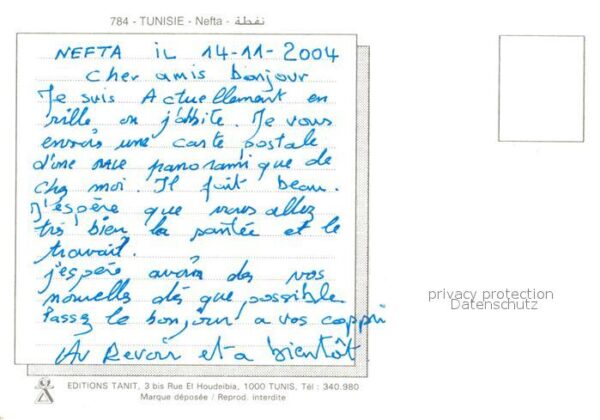 784 - TUNISIE - Nefta - نفطة
NEFTA iL 14-11-2004
Cher amis bonjour
Je suis Actuellement en
ville ou j'abite. Je vous
envois une carte postale
d'une vue panoramique de
chez moi. Il fait beau.
J'espère que vous allez
très bien la santée et le
travail.
j'espère avoir des vos
nouvelles dès que possible
Passez le bonjour a vos
Au Revoir et a bientôt.
privacy protection
Datenschutz
EDITIONS TANIT, 3 bis Rue El Houdeibia, 1000 TUNIS, Tél : 340.980
Marque déposée / Reprod. interdite